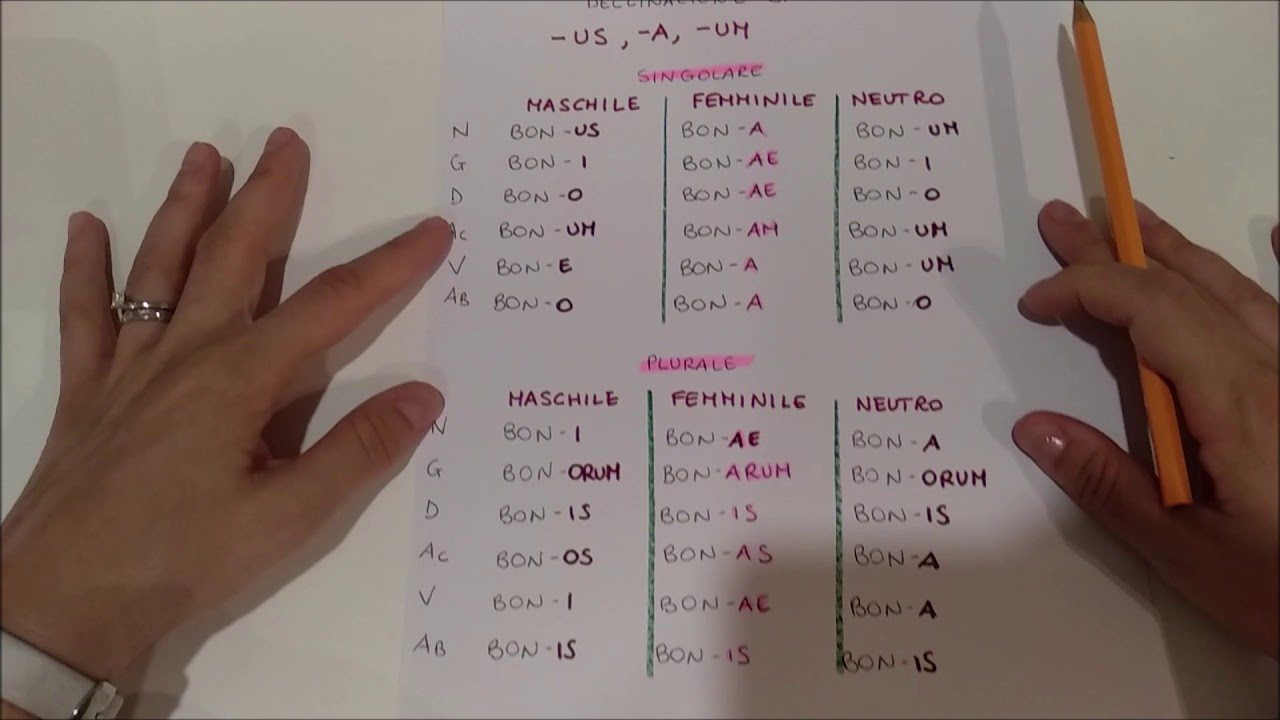 DECLINAZIONE
-US, -A, -UM
SINGOLARE
MASCHILE FEMMINILE NEUTRO
N BON-US BON-A BON-UM
G BON-I BON-AE BON-I
D BON-O BON-AE BON-O
Ac BON-UM BON-AM BON-UM
V BON-E BON-A BON-UM
AB BON-O BON-A BON-O
PLURALE
MASCHILE FEMMINILE NEUTRO
N BON-I BON-AE BON-A
G BON-ORUM BON-ARUM BON-ORUM
D BON-IS BON-IS BON-IS
Ac BON-OS BON-AS BON-A
V BON-I BON-AE BON-A
AB BON-IS BON-IS BON-IS